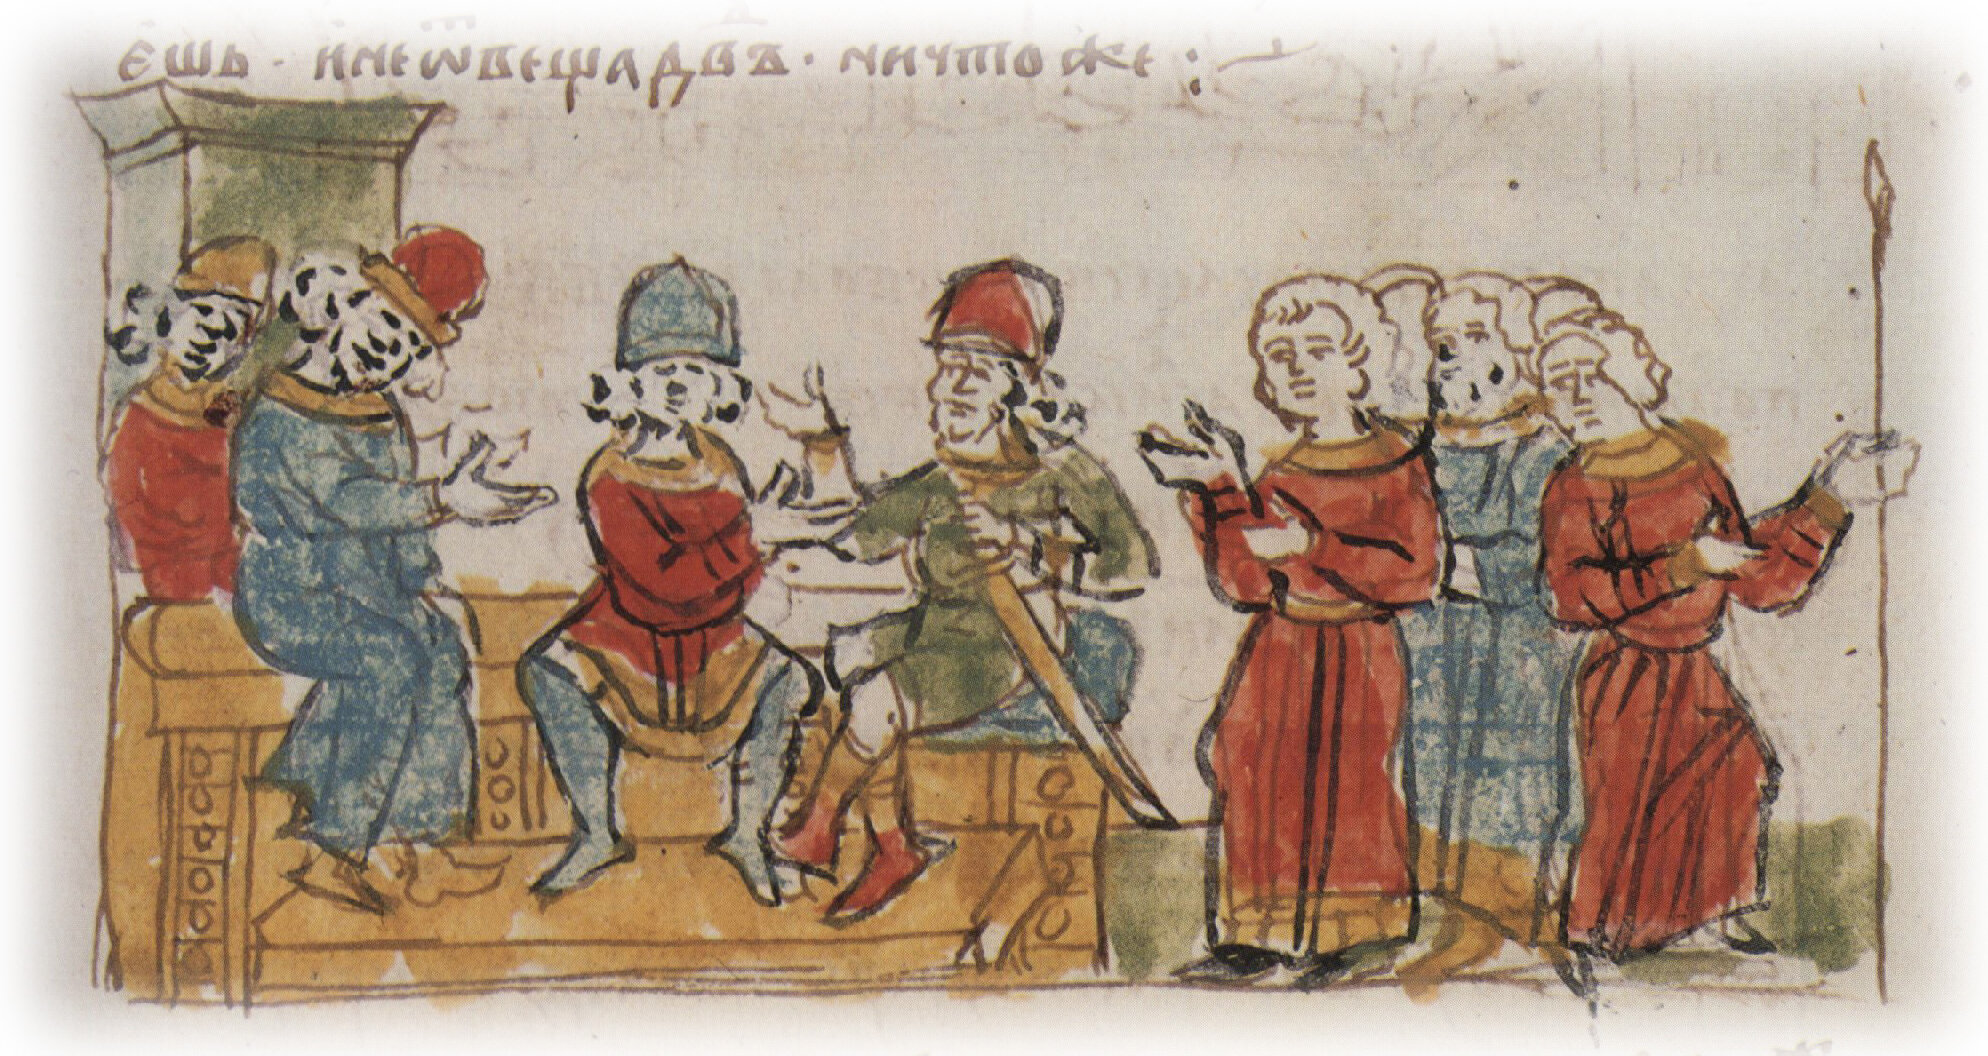 ешь · инеѿвещадв҃ъ · ничтоже :